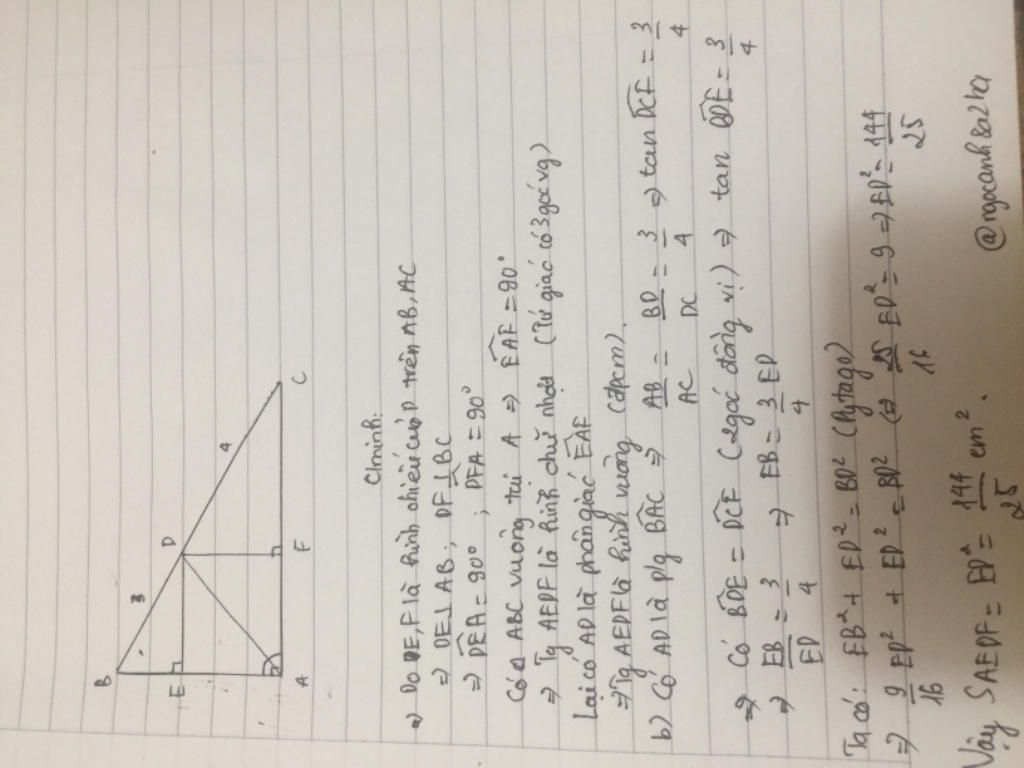 B
3
D
4
E
A
F
C
Cminh:
a) Do E, F là hình chiếu của D trên AB, AC
=> DE⊥AB; DF⊥BC
=> DEA = 90°; DFA = 90°
Có △ ABC vuông tại A => EAF = 90°
=> Tg AEDF là hình chữ nhật (Tứ giác có 3 góc vg)
Lại có AD là phân giác EAF
=> Tg AEDF là hình vuông (đpcm).
b) Có AD là p/g BAC => AB/AC = BD/DC = 3/4 => tan DCF = 3/4
=> Có BDE = DCF (2 góc đồng vị) => tan BDE = 3/4
=> EB/ED = 3/4 => EB = 3/4 ED
Ta có: EB² + ED² = BD² (Pytago)
=> 9/16 ED² + ED² = BD² (=) 25/16 ED² = 9 => ED² = 144/25
Vậy SAEDF = ED² = 144/25 cm².
@ngocanhso2ka